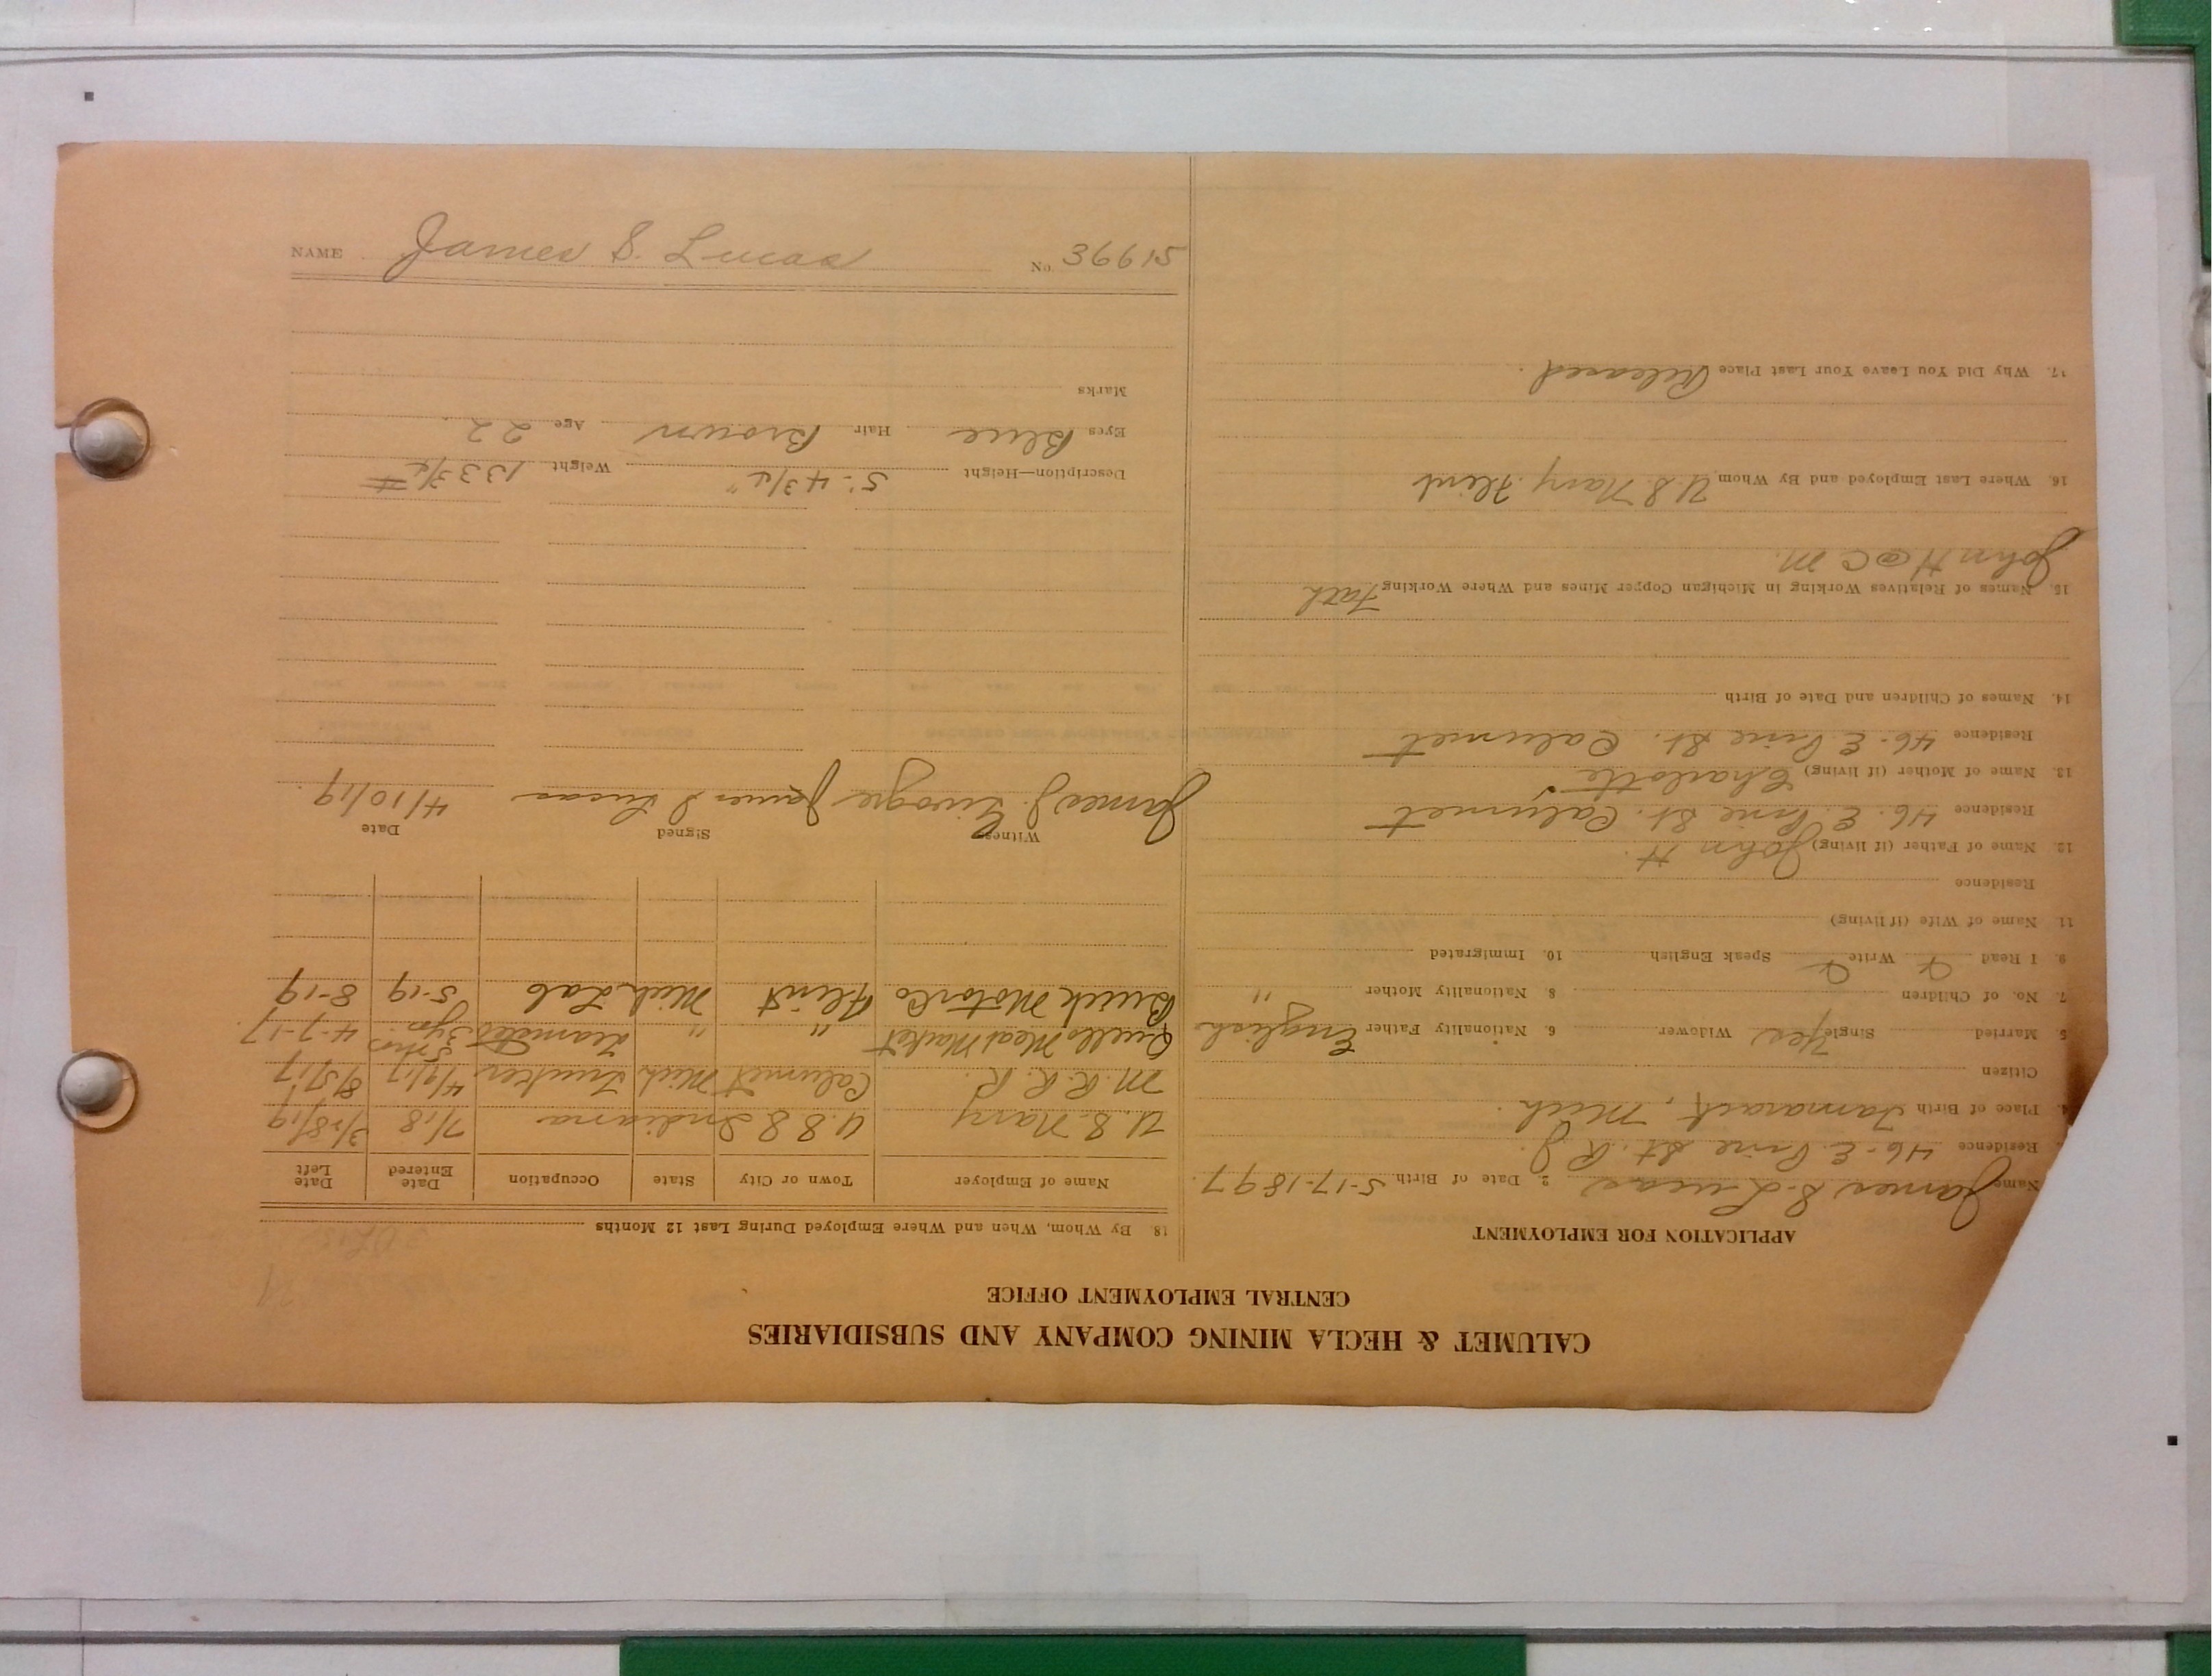 CALUMET & HECLA MINING COMPANY AND SUBSIDIARIES
CENTRAL EMPLOYMENT OFFICE
APPLICATION FOR EMPLOYMENT
Name James S. Lucas 2. Date of Birth 5-17-1897
Residence 46-E Pine St. R J.
4. Place of Birth Tamarack, Mich.
Citizen
5 Married Single Yes Widower 6. Nationality Father English
7. No. of Children 8. Nationality Mother "
9. I Read Write Speak English 10. Immigrated
11. Name of Wife (if living)
Residence
12. Name of Father (if living) John H.
Residence 46. E. Pine St. Calumet
13. Name of Mother (if living) Charlotte
Residence 46-E Pine St. Calumet
14. Names of Children and Date of Birth
15. Names of Relatives Working in Michigan Copper Mines and Where Working Fath
John H @ C M.
16. Where Last Employed and By Whom U.S. Navy. Flint
17. Why Did You Leave Your Last Place Released.
18. By Whom, When and Where Employed During Last 12 Months
Name of Employer Town or City State Occupation Date Entered Date Left
U.S. Navy U.S.S Indiana 7/18 3/28/19
M. R. R. R. Calumet Mich Trucker 4/9/17 8/5/17
Quello Meat Market " " Teamster 3 yrs. 5 mos 4-7-17.
Buick Motor Co Flint Mich Lab 5-19 8-19
Witness Signed Date
James J. James S Lucas 4/10/19.
Description—Height 5'-4 3/4" Weight 133 3/4 #
Eyes Blue Hair Brown Age 22
Marks
NAME James S. Lucas No 36615